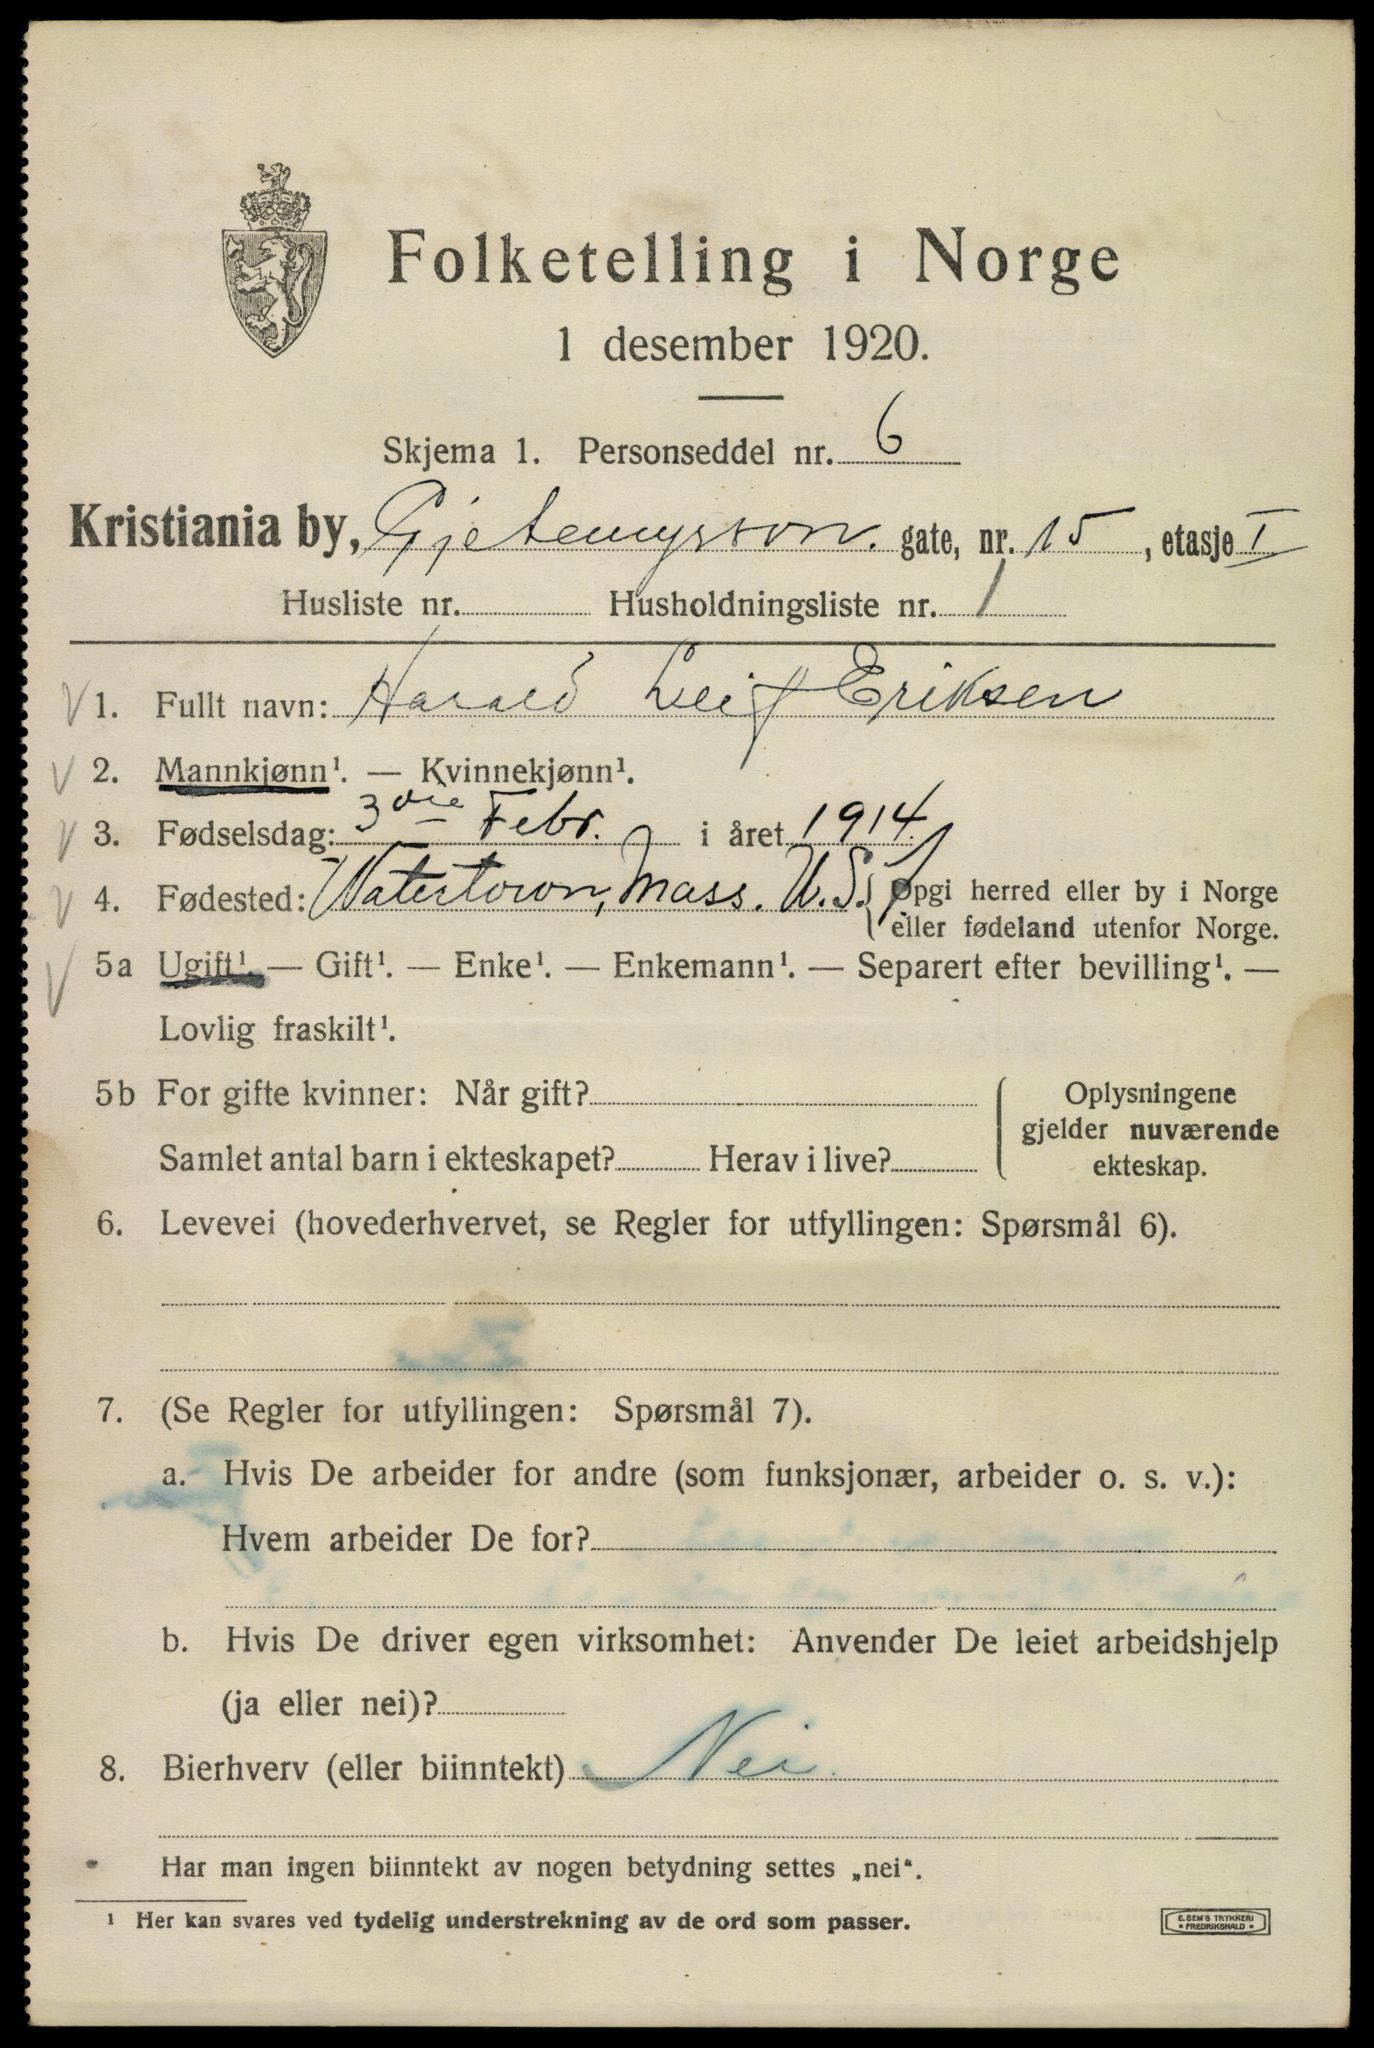 Folketelling i Norge
1 desember 1920.
Skjema 1. Personseddel nr. 6
Kristiania by, Gjetemysson. gate, nr. 15, etasje I
Husliste nr. Husholdningsliste nr. 1
V 1. Fullt navn: Harald Leif Eriksen
V 2. Mannkjønn¹. — Kvinnekjønn¹.
V 3. Fødselsdag: 3die Febr. i året 1914.
V 4. Fødested: Watertown, Mass. U.S. { Opgi herred eller by i Norge
eller fødeland utenfor Norge.
V 5a Ugift¹. — Gift¹. — Enke¹. — Enkemann¹. — Separert efter bevilling¹. —
Lovlig fraskilt¹.
5b For gifte kvinner: Når gift?
Samlet antal barn i ekteskapet? Herav i live?
Oplysningene
gjelder nuværende
ekteskap.
6. Levevei (hovederhvervet, se Regler for utfyllingen: Spørsmål 6).
7. (Se Regler for utfyllingen: Spørsmål 7).
a. Hvis De arbeider for andre (som funksjonær, arbeider o. s. v.):
Hvem arbeider De for?
b. Hvis De driver egen virksomhet: Anvender De leiet arbeidshjelp
(ja eller nei)?
8. Bierhverv (eller biinntekt) Nei.
Har man ingen biinntekt av nogen betydning settes „nei“.
¹ Her kan svares ved tydelig understrekning av de ord som passer.
E. SEM'S TRYKKERI
* FREDRIKSHALD *